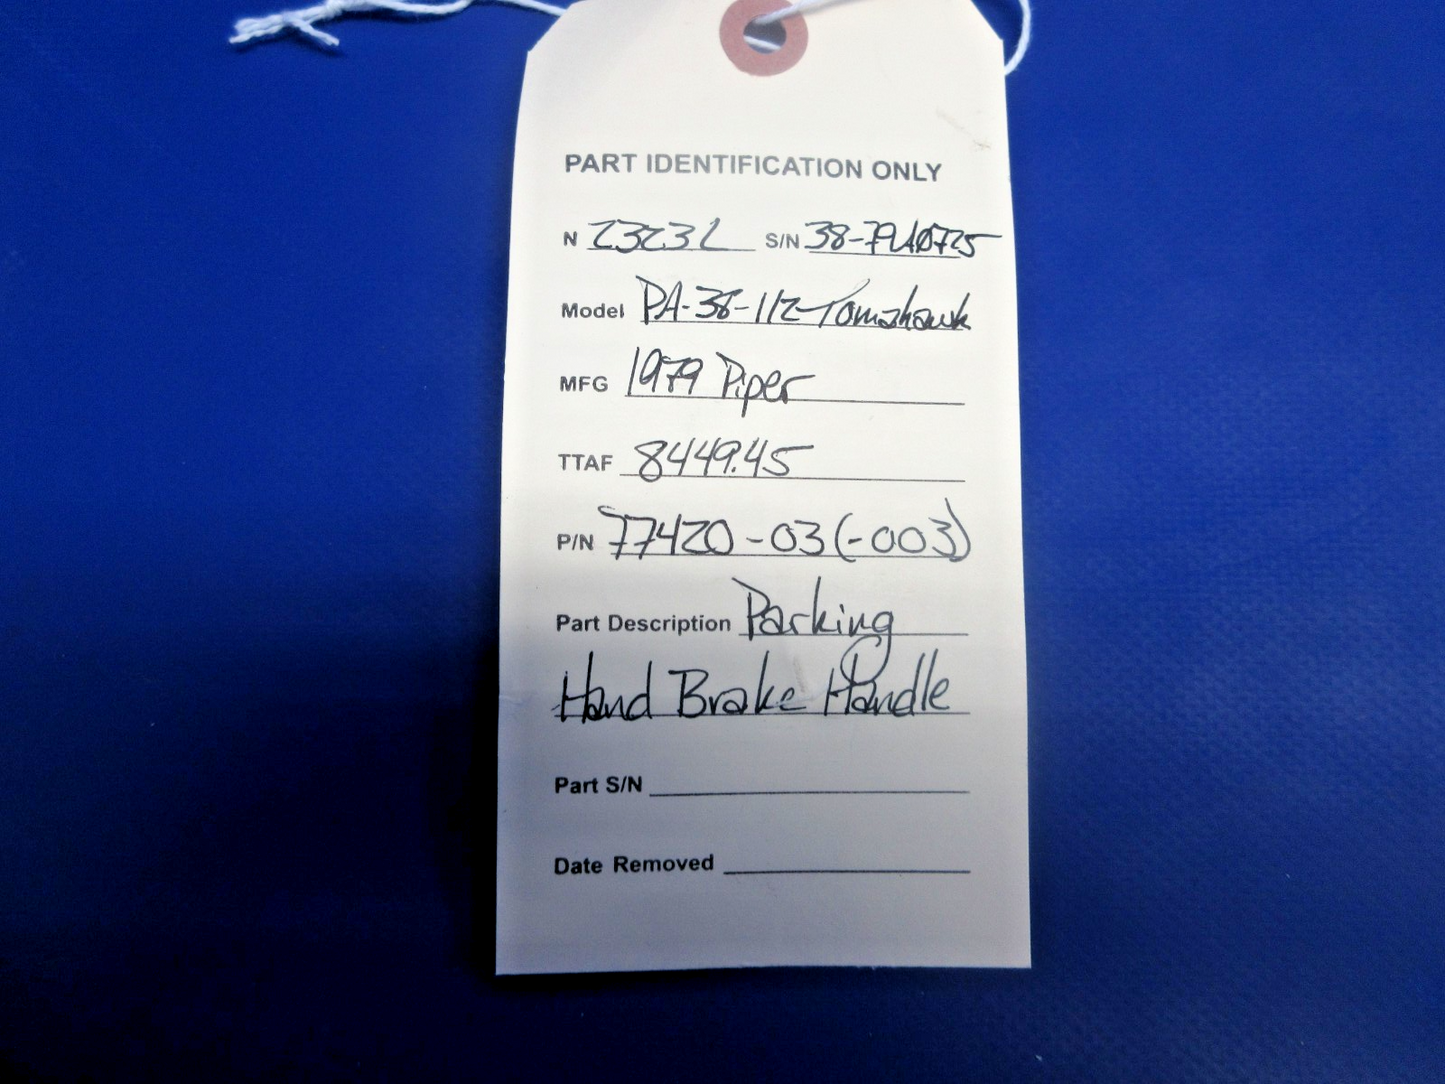 PART IDENTIFICATION ONLY
N 2323L S/N 38-79A0725
Model PA-38-112-Tomahawk
MFG 1979 Piper
TTAF 8449.45
P/N 77420-03(-003)
Part Description Parking
Hand Brake Handle
Part S/N
Date Removed